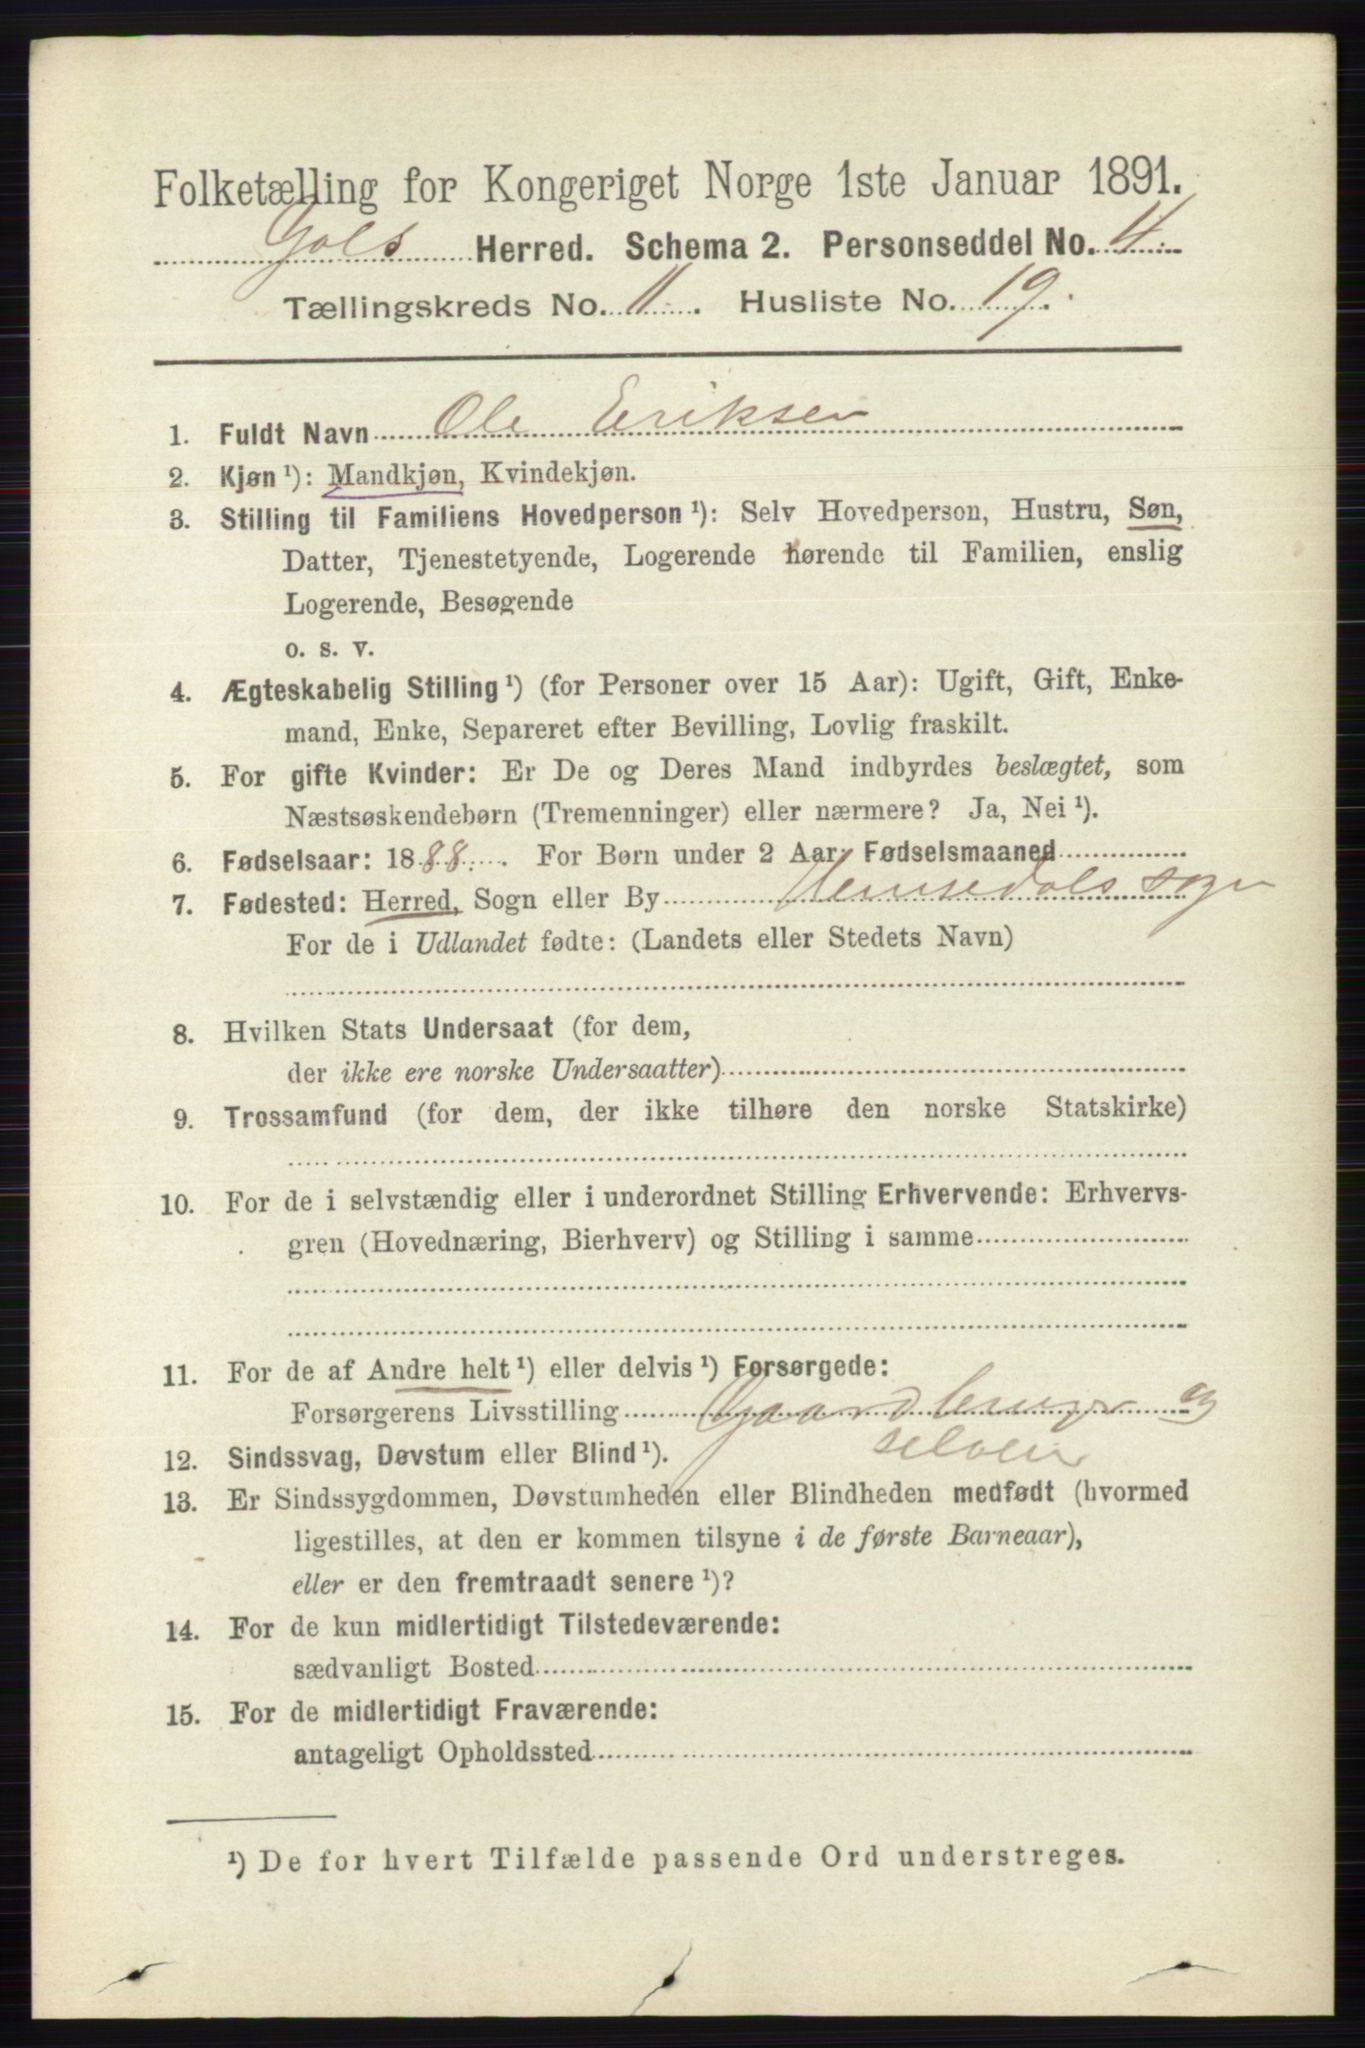 Folketælling for Kongeriget Norge 1ste Januar 1891.
Gols Herred. Schema 2. Personseddel No. 4.
Tællingskreds No. 11. Husliste No. 19.
1. Fuldt Navn Ole Eriksen
2. Kjøn ¹): Mandkjøn, Kvindekjøn.
3. Stilling til Familiens Hovedperson ¹): Selv Hovedperson, Hustru, Søn,
Datter, Tjenestetyende, Logerende hørende til Familien, enslig
Logerende, Besøgende
o. s. v.
4. Ægteskabelig Stilling ¹) (for Personer over 15 Aar): Ugift, Gift, Enke-
mand, Enke, Separeret efter Bevilling, Lovlig fraskilt.
5. For gifte Kvinder: Er De og Deres Mand indbyrdes beslægtet, som
Næstsøskendebørn (Tremenninger) eller nærmere? Ja, Nei ¹).
6. Fødselsaar: 1888. For Børn under 2 Aar: Fødselsmaaned
7. Fødested: Herred, Sogn eller By Hemsedals sogn
For de i Udlandet fødte: (Landets eller Stedets Navn)
8. Hvilken Stats Undersaat (for dem,
der ikke ere norske Undersaatter)
9. Trossamfund (for dem, der ikke tilhøre den norske Statskirke)
10. For de i selvstændig eller i underordnet Stilling Erhvervende: Erhvervs-
gren (Hovednæring, Bierhverv) og Stilling i samme
11. For de af Andre helt ¹) eller delvis ¹) Forsørgede:
Forsørgerens Livsstilling Gaardbruger og
selveier
12. Sindssvag, Døvstum eller Blind ¹).
13. Er Sindssygdommen, Døvstumheden eller Blindheden medfødt (hvormed
ligestilles, at den er kommen tilsyne i de første Barneaar),
eller er den fremtraadt senere ¹)?
14. For de kun midlertidigt Tilstedeværende:
sædvanligt Bosted
15. For de midlertidigt Fraværende:
antageligt Opholdssted
¹) De for hvert Tilfælde passende Ord understreges.